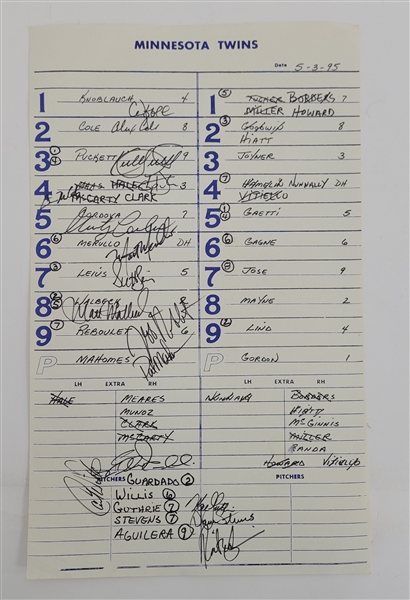 MINNESOTA TWINS
Date 5-3-95
1 KNOBLAUCH 4
2 COLE Alex Cole 8
3 PUCKETT 9
4 HALE 3
MCCARTY CLARK
5 CORDOVA 7
6 MERULLO DH
7 LEIUS 5
8 WALBECK 2
9 REBOULET 6
P MAHOMES
1 TUCKER BORDERS 7
MILLER HOWARD
2 GOODWIN 8
HIATT
3 JOYNER 3
4 HAMELIN NUNNALLY DH
VITIELLO
5 GAETTI 5
6 GAGNE 6
7 JOSE 9
8 MAYNE 2
9 LIND 4
P GORDON 1
LH EXTRA RH
HALE MEARES
MUNOZ
CLARK
MCCARTY
PITCHERS
GUARDADO 2
WILLIS 6
GUTHRIE 7
STEVENS 7
AGUILERA 9
LH EXTRA RH
NUNNALLY BORDERS
HIATT
MCGINNIS
MILLER
RANDA
HOWARD VITIELLO
PITCHERS